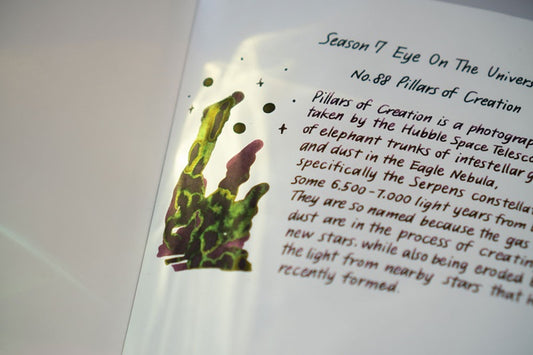 Season 7 Eye On The Univers
No.88 Pillars of Creation
Pillars of Creation is a photograp
taken by the Hubble Space Telesco
of elephant trunks of intestellar g
and dust in the Eagle Nebula,
specifically the Serpens constellat
some 6.500-7.000 light years from
They are so named because the gas
dust are in the process of creatin
new stars. while also being eroded
the light from nearby stars that
recently formed.